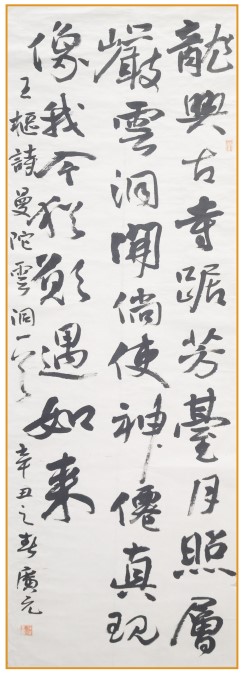 龍興古寺踞芳臺月照層
巖雲洞開倘使神僊真現
像我今猶願遇如来
王樞詩曼陀雲洞一首 辛丑之春廣元